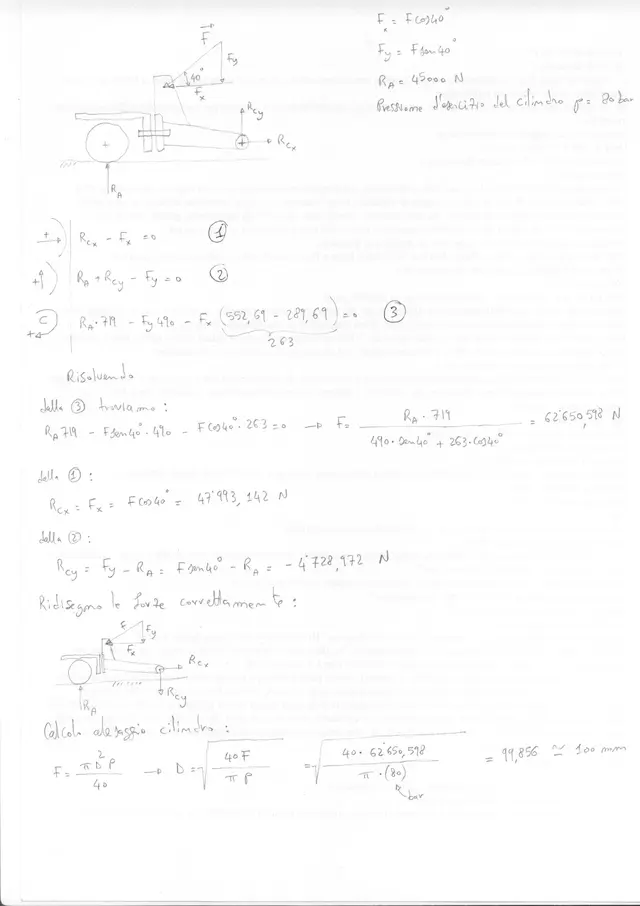 F_x = F cos40°
F_y = F sen40°
R_A = 45000 N
Pressione d'esercizio del cilindro p = 80 bar
F
F_y
40°
F_x
R_Cy
R_Cx
R_A
+ R_Cx - F_x = 0 ①
+ R_A + R_Cy - F_y = 0 ②
C + R_A·719 - F_y 490 - F_x (552,69 - 289,69) = 0 ③
263
Risolvendo
dalla ③ troviamo:
R_A 719 - F sen40°·490 - F cos40°·263 = 0 → F = R_A·719 / (490·sen40° + 263·cos40°) = 62'650,598 N
dalla ①:
R_Cx = F_x = F cos40° = 47'993,142 N
dalla ②:
R_Cy = F_y - R_A = F sen40° - R_A = -4'728,972 N
Ridisegno le forze correttamente:
F
F_y
F_x
R_Cx
R_Cy
R_A
Calcolo alesaggio cilindro:
F = πD²p / 40 → D = √(40F / πp) = √(40·62'650,598 / π·(80)) = 99,856 ≃ 100 mm
bar